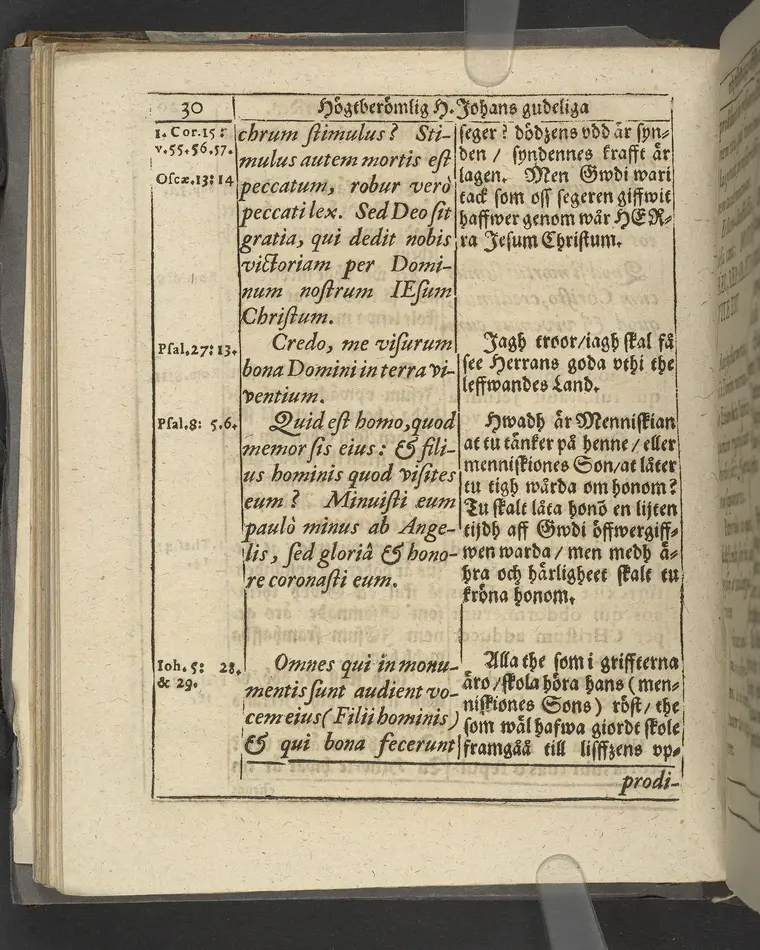 30
Högtberömlig H. Johans gudeliga
1. Cor. 15:
v. 55. 56. 57.
Oseæ. 13: 14
chrum stimulus? Sti-
mulus autem mortis est
peccatum, robur verò
peccati lex. Sed Deo sit
gratia, qui dedit nobis
victoriam per Domi-
num nostrum IEsum
Christum.
seger? dödzens vdd är syn-
den / syndennes krafft är
lagen. Men Gwdi wari
tack som oss segeren giffwit
haffwer genom wår HER-
ra Jesum Christum.
Psal. 27: 13.
Credo, me visurum
bona Domini in terra vi-
ventium.
Jagh troor / iagh skal få
see Herrans goda vthi the
leffwandes Land.
Psal. 8: 5. 6.
Quid est homo, quod
memor sis eius: & fili-
us hominis quod visites
eum? Minuisti eum
paulò minus ab Ange-
lis, sed gloriâ & hono-
re coronasti eum.
Hwadh är Menniskian
at tu tänker på henne / eller
menniskiones Son / at låter
tu tigh wårda om honom?
Tu skalt låta honõ en lijten
tijdh aff Gwdi öffwergiff-
wen warda / men medh ä-
hra och härligheet skalt tu
kröna honom.
Ioh. 5: 28.
& 29.
Omnes qui in monu-
mentis sunt audient vo-
cem eius (Filii hominis)
& qui bona fecerunt
Alla the som i griffterna
äro / skola höra hans (men-
niskiones Sons) röst / the
som wäl hafwa giordt skole
framgåå till lisffzens vp-
prodi-